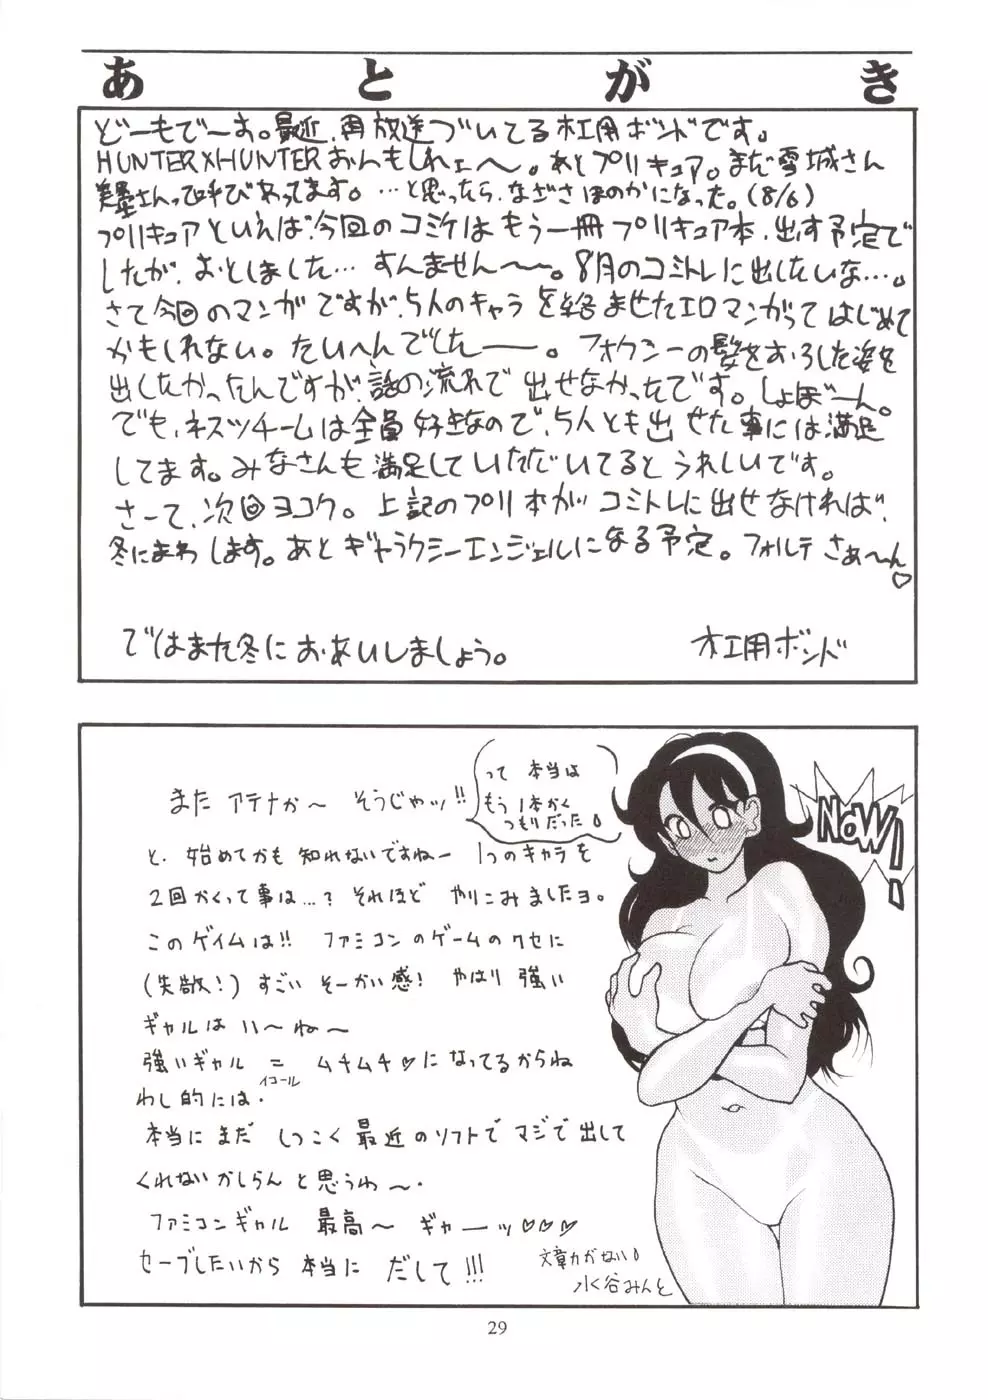 あとがき
どーもでーす。最近、再放送づいてる木工用ボンドです。
HUNTER×HUNTERおんもしれェ〜。あとプリキュア。まだ雪城さん
美墨さんって呼びあってます。…と思ったら、なぎさほのかになった。(8/6)
プリキュアといえば、今回のコミケはもう一冊プリキュア本、出す予定で
したが、おとしました…すんません〜〜。8月のコミトレに出したいな…。
さて今回のマンガですが、5人のキャラを絡ませたエロマンガってはじめて
かもしれない。たいへんでした――。フォクシーの髪をおろした姿を
出したかったんですが、話の流れで出せなかったです。しょぼーん。
でも、ネスツチームは全員好きなので、5人とも出せた事には満足
してます。みなさんも満足していただいてるとうれしいです。
さーて、次回ヨコク。上記のプリ本がコミトレに出せなければ、
冬にまわします。あとギャラクシーエンジェルになる予定。フォルテさぁ〜ん♡
ではまた冬におあいしましょう。
木工用ボンド
って本当は
もう1本かく
つもりだった
NOW!
またアテナか〜そうじゃッ!!
と、始めてかも知れないですねー1つのキャラを
2回かくって事は…?それほどやりこみましたヨ。
このゲイムは!!ファミコンのゲームのクセに
(失敬!)すごいそーかい感!やはり強い
ギャルはい〜ね〜
強いギャル=ムチムチ♡になってるからね
イコール
わし的には・
本当にまだしつこく最近のソフトでマジで出して
くれないかしらんと思うわ〜・
ファミコンギャル最高〜ギャーーッ♡♡♡
セーブしたいから本当にだして!!!
文章力がない
水谷みんと
29